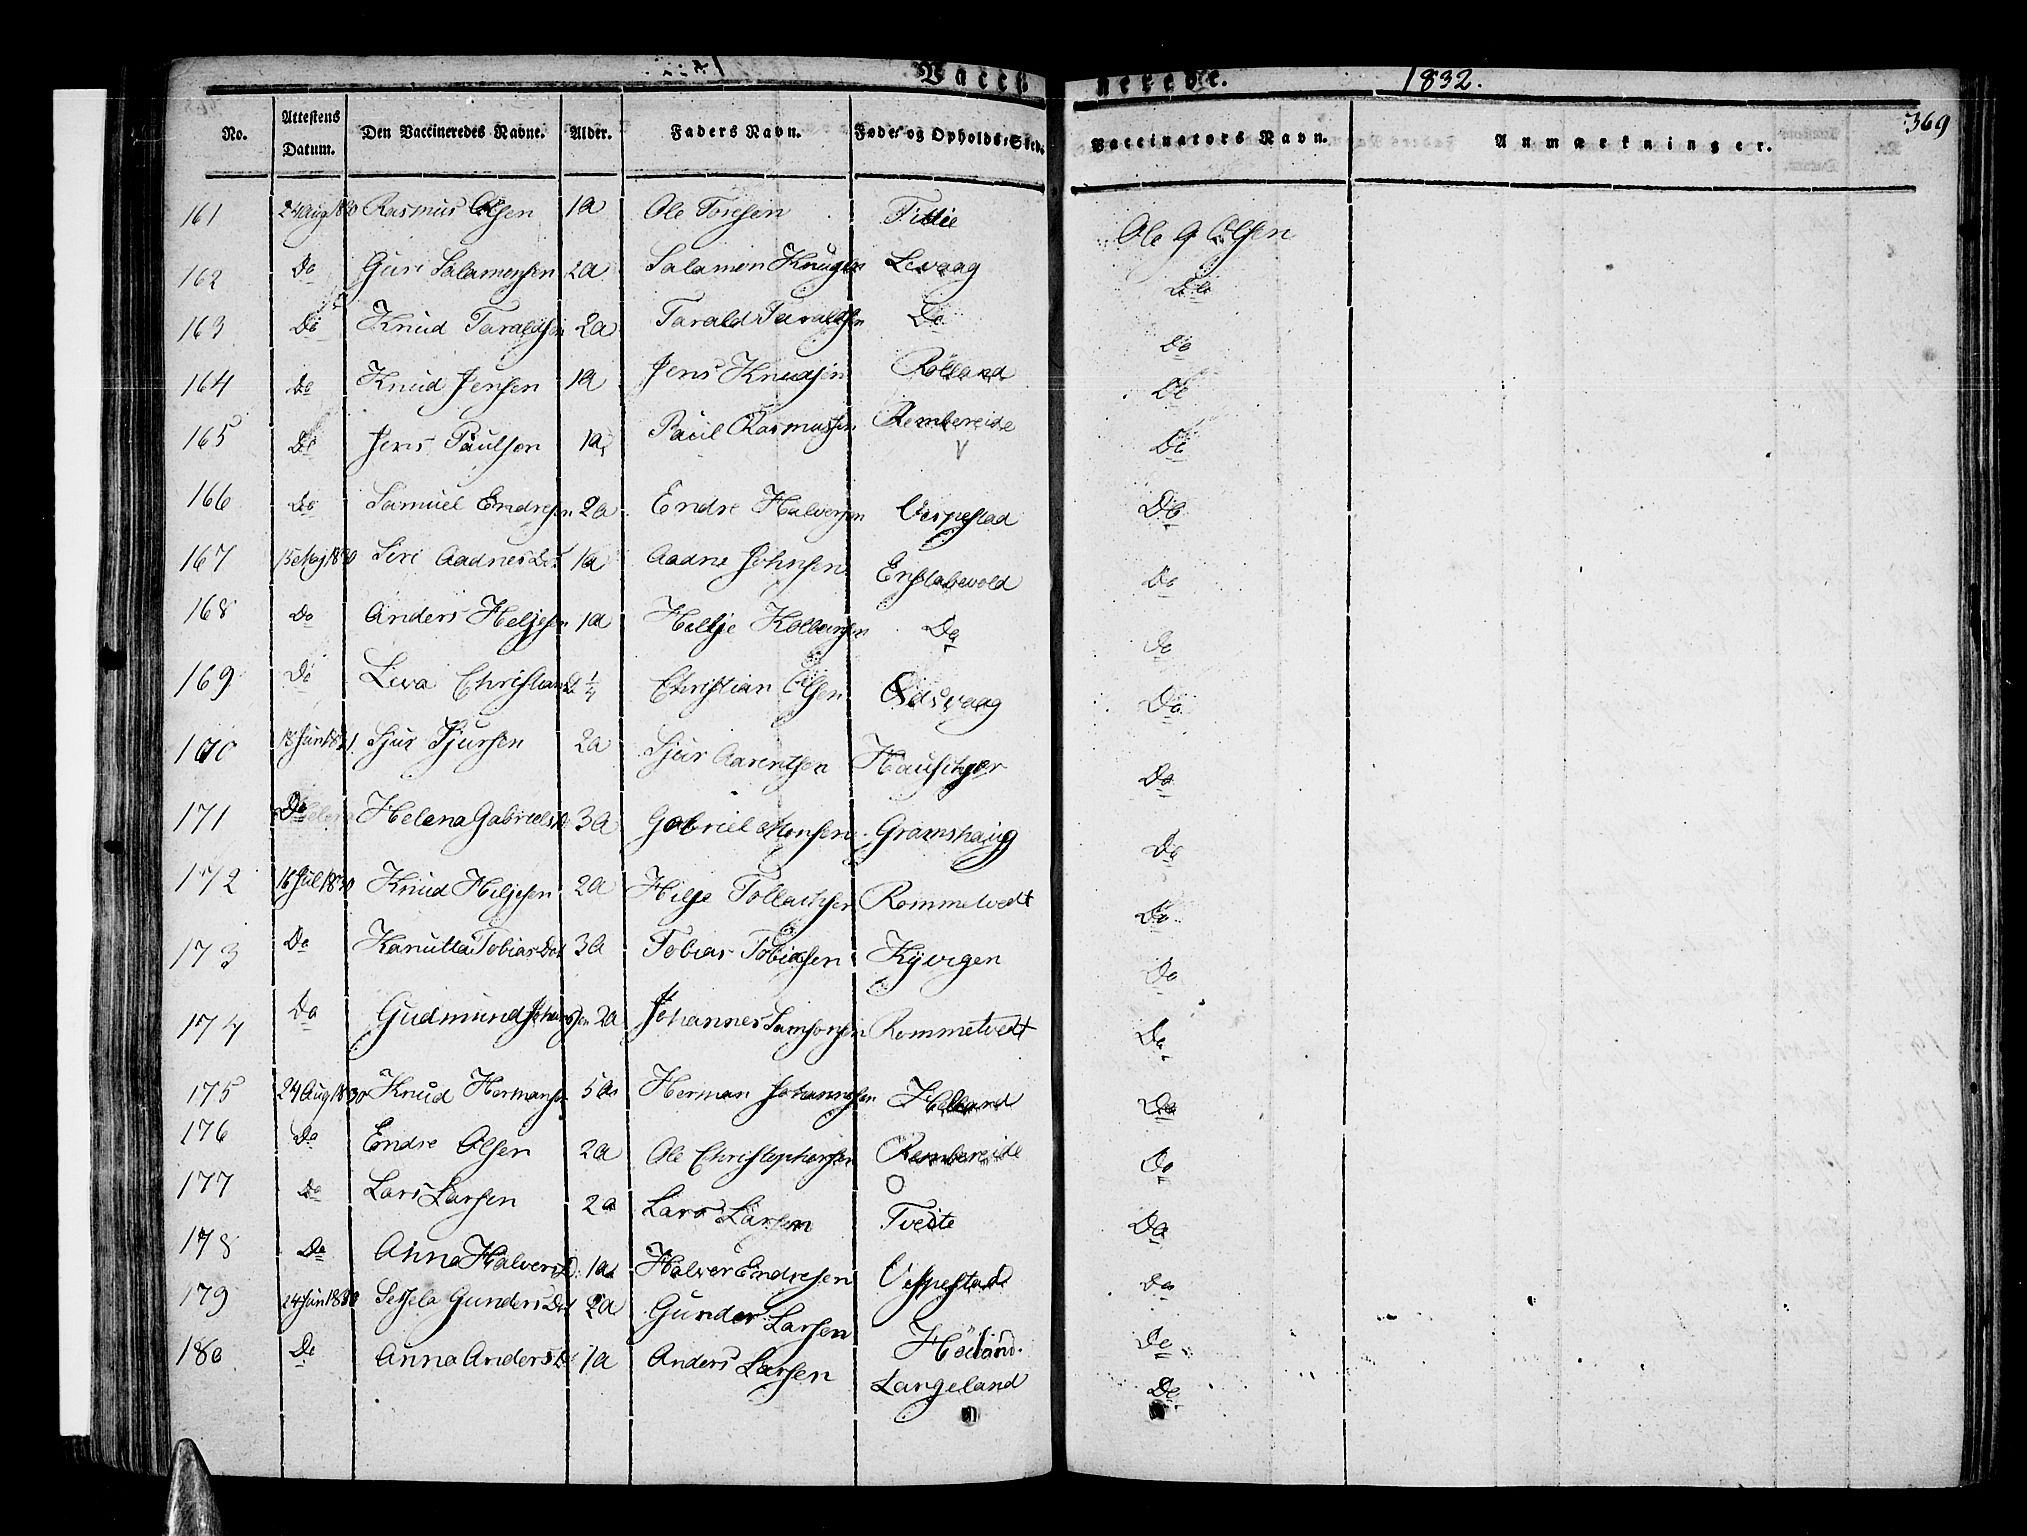 Vacci nerede. 1832.
369
No. Attestens Datum. Den Vaccineredes Navne. Alder. Faders Navn. Føde- og Opholds-Sted. Vaccinators Navn. Anmærkninger.
161 24 Aug 1830 Rasmus Olsen 1a Ole Toresen Ole G Olsen
162 Do Guri Salamonsen 2a Salamon Knugen Levaag Do
163 Do Knud Taraldsen 2a Tarald Taraldsen Do Do
164 Do Knud Jensen 1a Jens Knudsen Rölland Do
165 Do Jens Paulsen 1a Paul Rasmussen Rembereide Do
166 Do Samuel Endresen 2a Endre Halversen Vespestad Do
167 15 Maj 1830 Siri Aadnes Dat 1a Aadne Johnsen Enstabevold Do
168 Do Anders Heljesen 1a Heltje Kolbensen Do Do
169 Do Liva Christians 2 1/4 Christian Olsen Odsvaag Do
170 18 Jun 1831 Sjur Sjursen 2a Sjur Aarentsen Do
171 Do Helena Gabriels D 3a Gabriel Monsen Gramshaug Do
172 16 Jul 1830 Knud Heljesen 2a Helje Tollachsen Rommetvedt Do
173 Do Kanutta Tobias Dat 3a Tobias Tobiasen Kyvigen Do
174 Do Gudmund Johannesen 2a Johannes Samsonsen Rommetvedt Do
175 24 Aug 1830 Knud Hermansen 5a Herman Johannesen Do
176 Do Endre Olsen 2a Ole Christophersen Rembereide Do
177 Do Lars Larsen 2a Lars Larsen Tveite Do
178 Do Anna Halvers D. 1a Halver Endresen Vespestad Do
179 24 Jun 1830 Sessela Gunders Dat 2a Gunder Larsen Höiland. Do
180 Do Anna Anders D 1a Anders Larsen Langeland Do